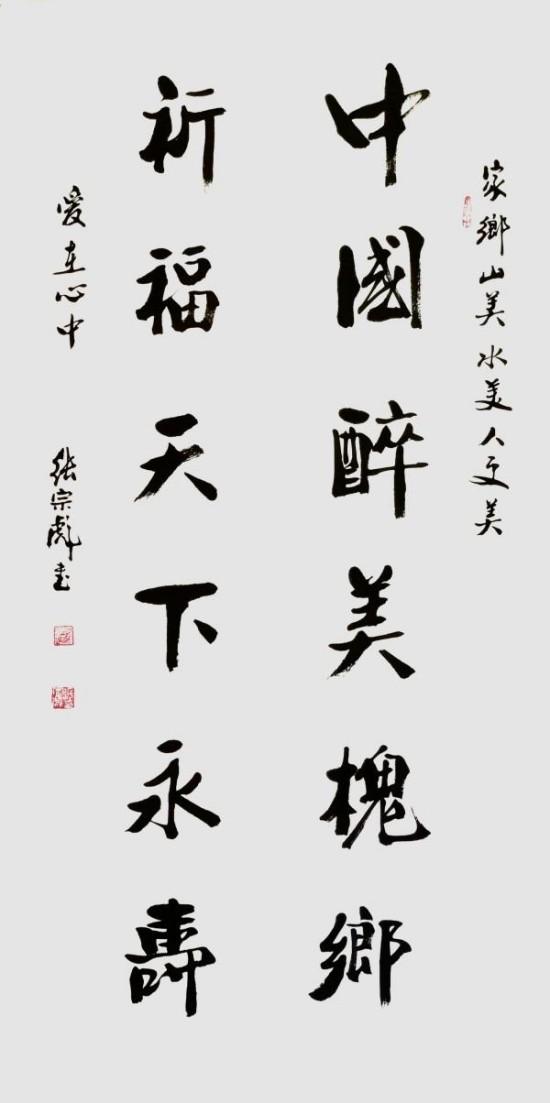 家鄉山美水美人更美
中國醉美槐鄉
祈福天下永壽
愛在心中
張宗彪書